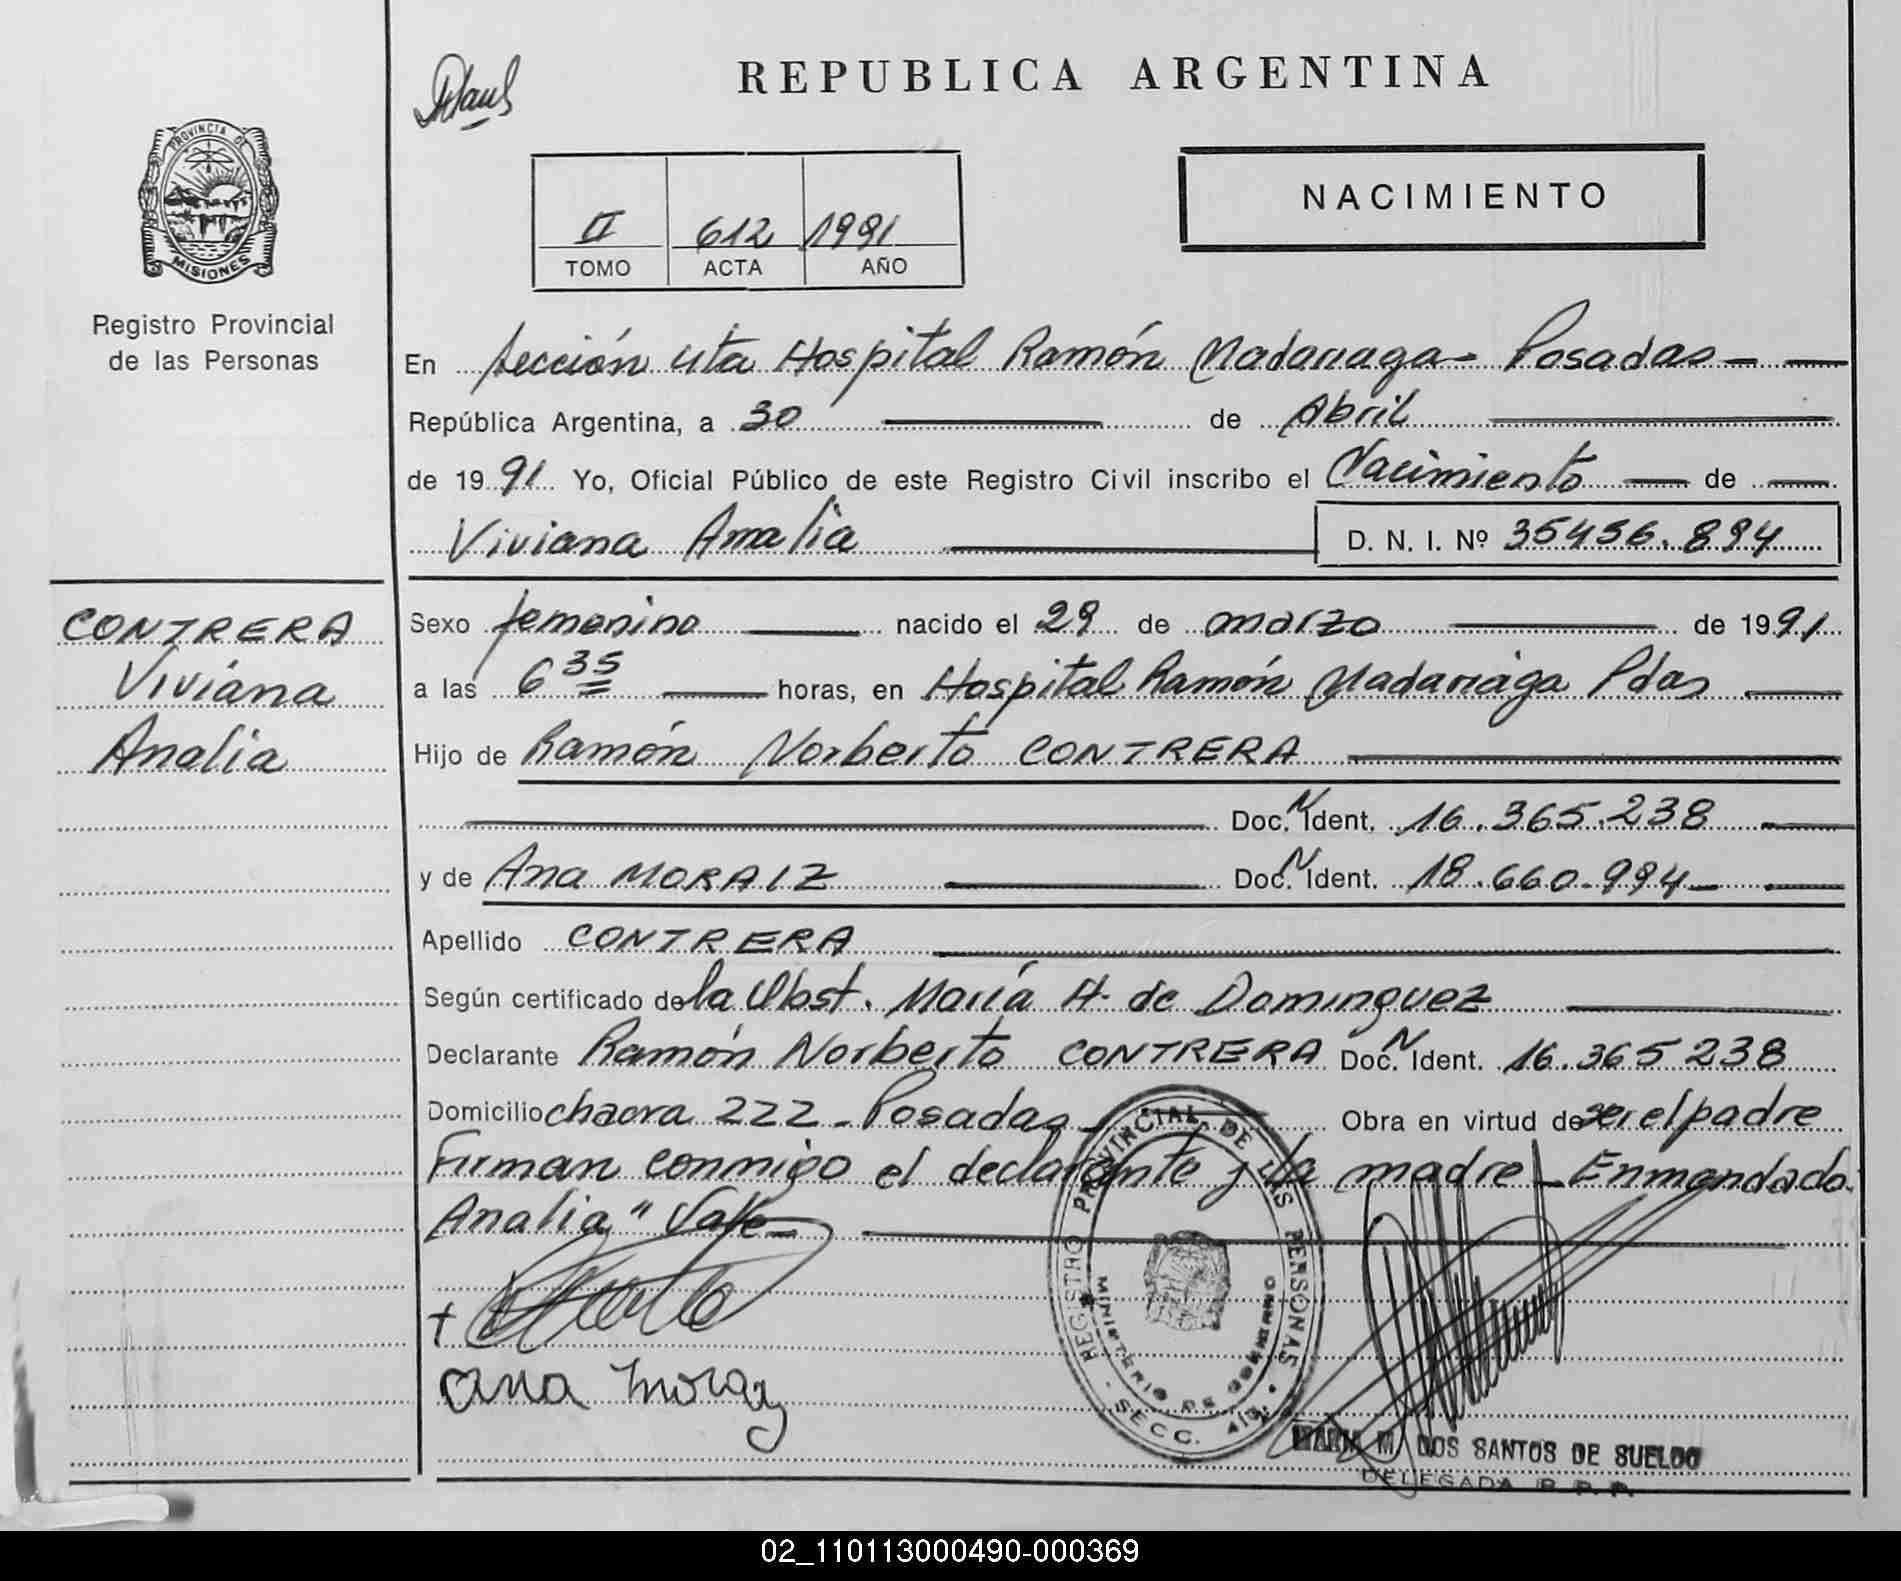 REPUBLICA ARGENTINA
PROVINCIA DE
MISIONES
Registro Provincial
de las Personas
II 612 1991
TOMO ACTA AÑO
NACIMIENTO
En Sección 4ta Hospital Ramón Madariaga - Posadas -
República Argentina, a 30 de Abril
de 1991 Yo, Oficial Público de este Registro Civil inscribo el Nacimiento de
Viviana Analia D. N. I. Nº 35456.894
CONTRERA
Viviana
Analia
Sexo femenino nacido el 29 de marzo de 1991
a las 6 35 horas, en Hospital Ramón Madariaga Pdas
Hijo de Ramón Norberto CONTRERA
Doc. N Ident. 16.365.238
y de Ana MORAIZ Doc. N Ident. 18.660.994
Apellido CONTRERA
Según certificado de la Obst. María H. de Dominguez
Declarante Ramón Norberto CONTRERA Doc. N Ident. 16.365 238
Domicilio chacra 222 - Posadas - Obra en virtud de ser el padre
Firman conmigo el declarante y la madre - Enmendado:
Analia" Vale -
Ana Moraiz
REGISTRO PROVINCIAL DE LAS PERSONAS
MINISTERIO DE GOBIERNO
SECC. 4ta.
MARIA M. DOS SANTOS DE SUELDO
DELEGADA R. P. P.
02_110113000490-000369